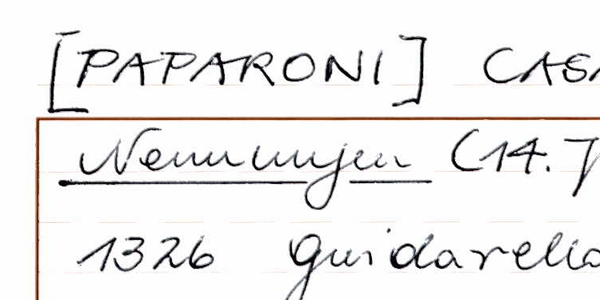 [PAPARONI] CASA
Nennungen (14. J
1326 Guidarello